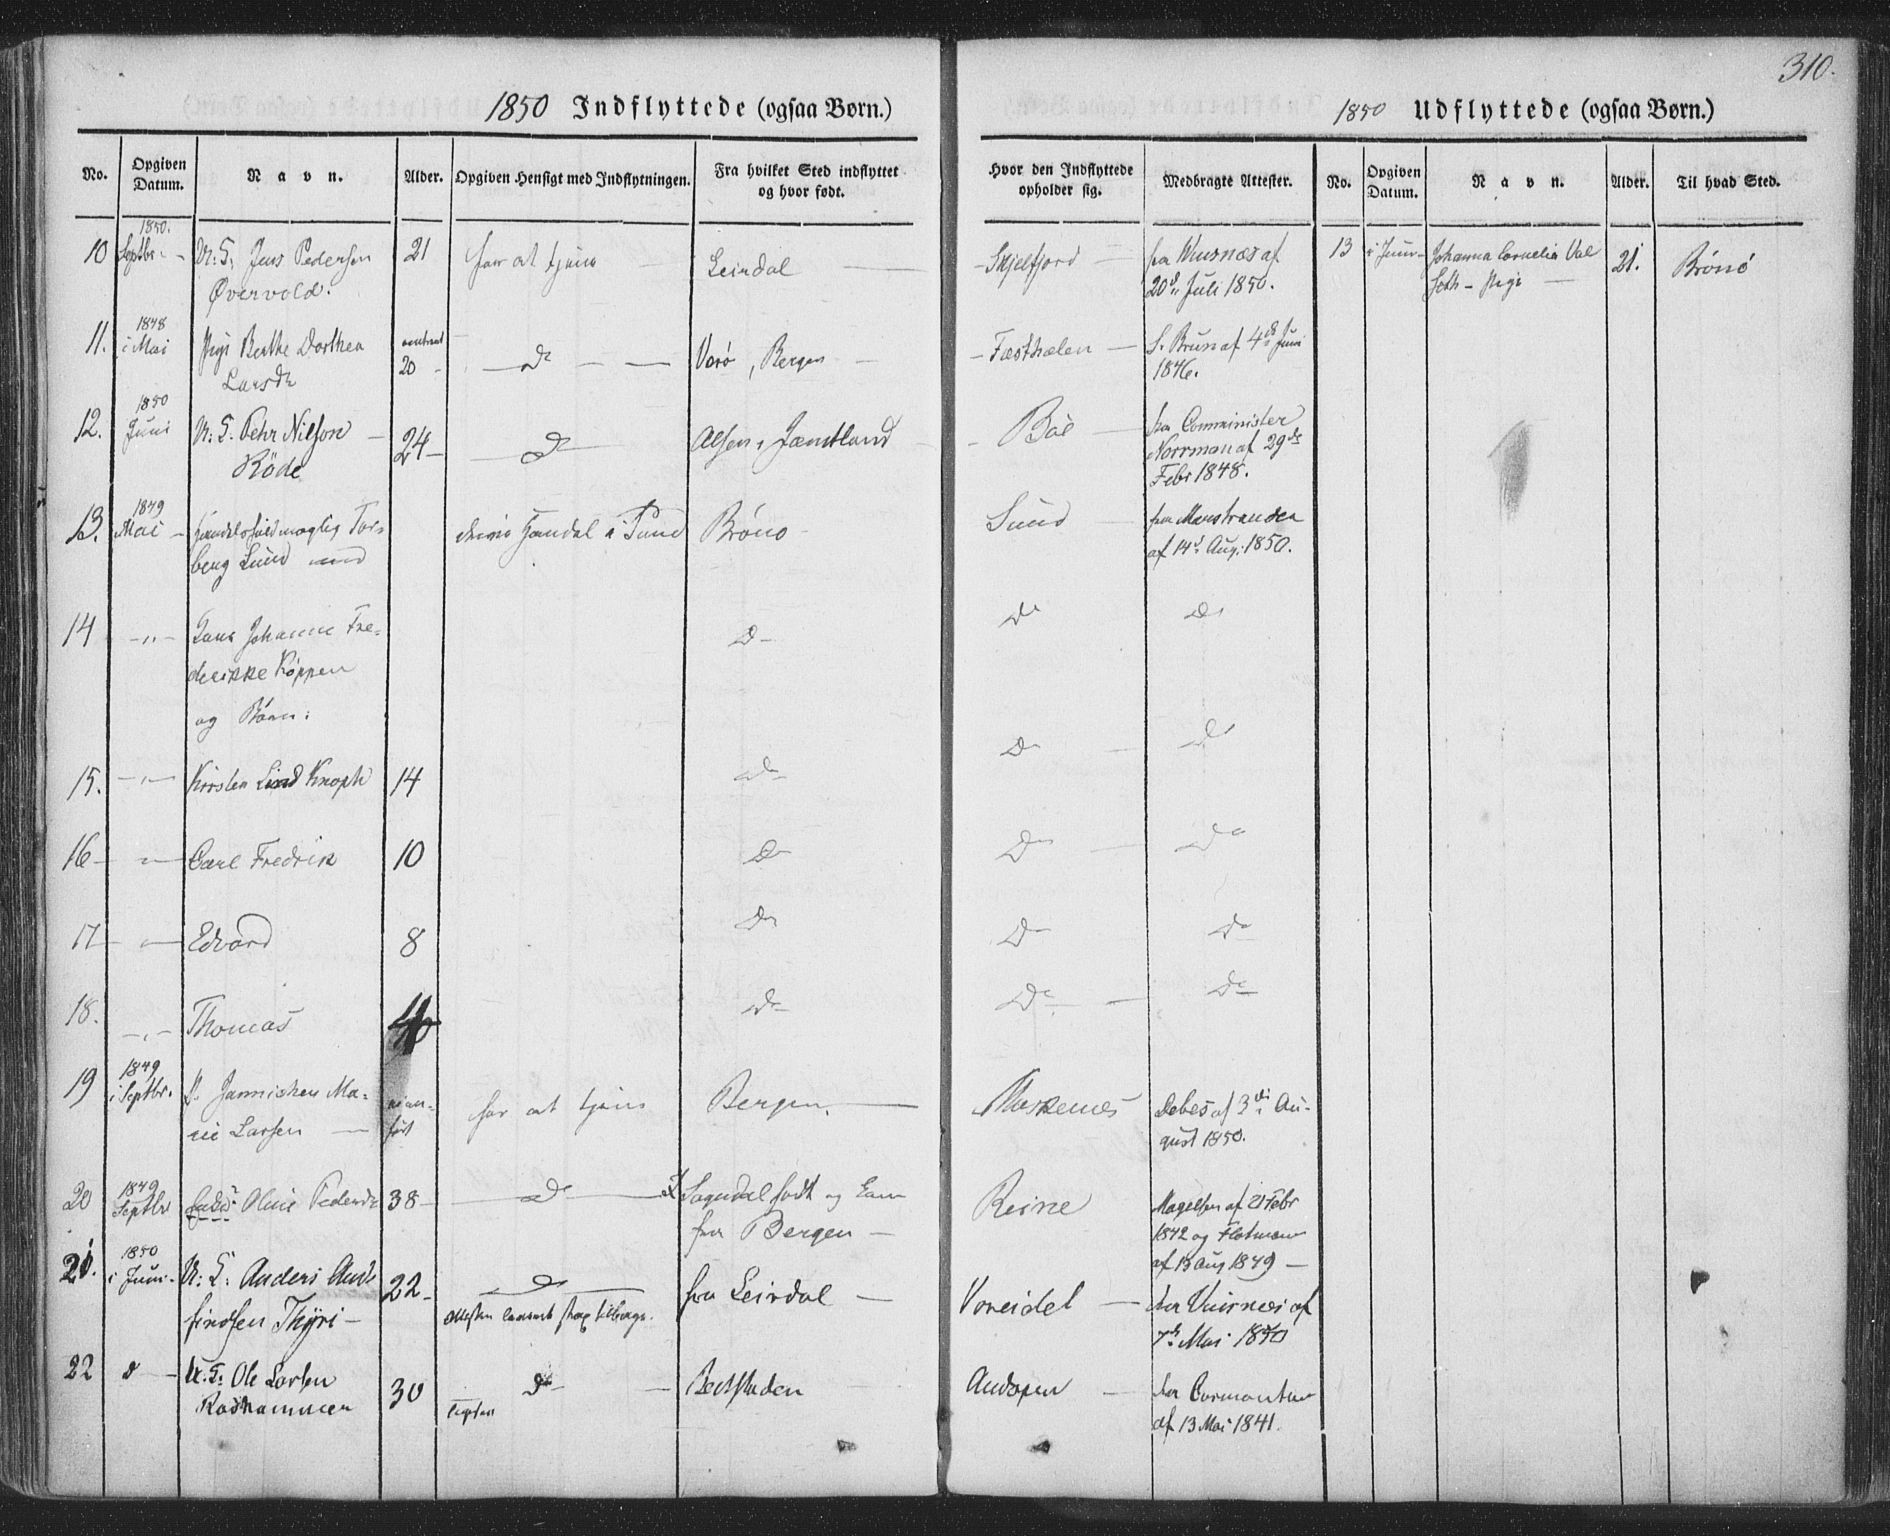 310.
1850 Indflyttede (ogsaa Børn.)
1850 Udflyttede (ogsaa Børn.)
No. Opgiven Datum. Navn. Alder. Opgiven Hensigt med Indflytningen. Fra hvilket Sted indflyttet og hvor født. Hvor den Indflyttede opholder sig. Medbragte Attester. No. Opgiven Datum. Navn. Alder. Til hvad Sted.
10 1850. Septbr. U: S: Jens Pedersen 21 for at tjene Leirdal Skjelfjord fra af 13 i Juni Johanna Cornelia Val 21. Brönö
Øvervold. 20d Juli 1850. Seth - Pige
11. 1848 i Mai Pige Berthe Dorthea 20 do Varö, Bergen Fæsthælen S. Brun af 4de Juni
Larsdr 1846.
12. 1850 Juni U: S. Pehr Nilson 24 do Alsen, Jæmtland Böe fra Comminister
Röde Norrman af 29de
Febr 1848.
13. 1849 Mai Tor- Handel i Sund Brönö Sund fra Marstrander
berg Lund af 14d Aug: 1850.
14 -"- Johanne Fre- do do do
derikke Köppen
og Börn:
15. -"- Kirsten Lind Knoph 14 do do do
16 " Carl Fredrik 10 do do do
17 " Edvard 8 do do do
18. -"- Thomas 4 do do do
19 1849 i Septbr. P. Jannichen Ma- for at tjene Bergen. Moskenes Debes af 3di Au-
rie Larsen gust 1850.
20 1849 Septbr Oline Pedersdr 38 do Sogndal födt og kom Reine Magelsen af 21 Febr
fra Bergen 1842 og Flotmann
af 13 Aug 1849
21. 1850 i Juni U: S: Anders And- 22 do fra Leirdal Voreidet af
findsen Thÿri 7de Mai 1850
22 d U. S: Ole Larsen 30 do Beitstaden Andopen
Rodhammer af 13 Mai 1841.